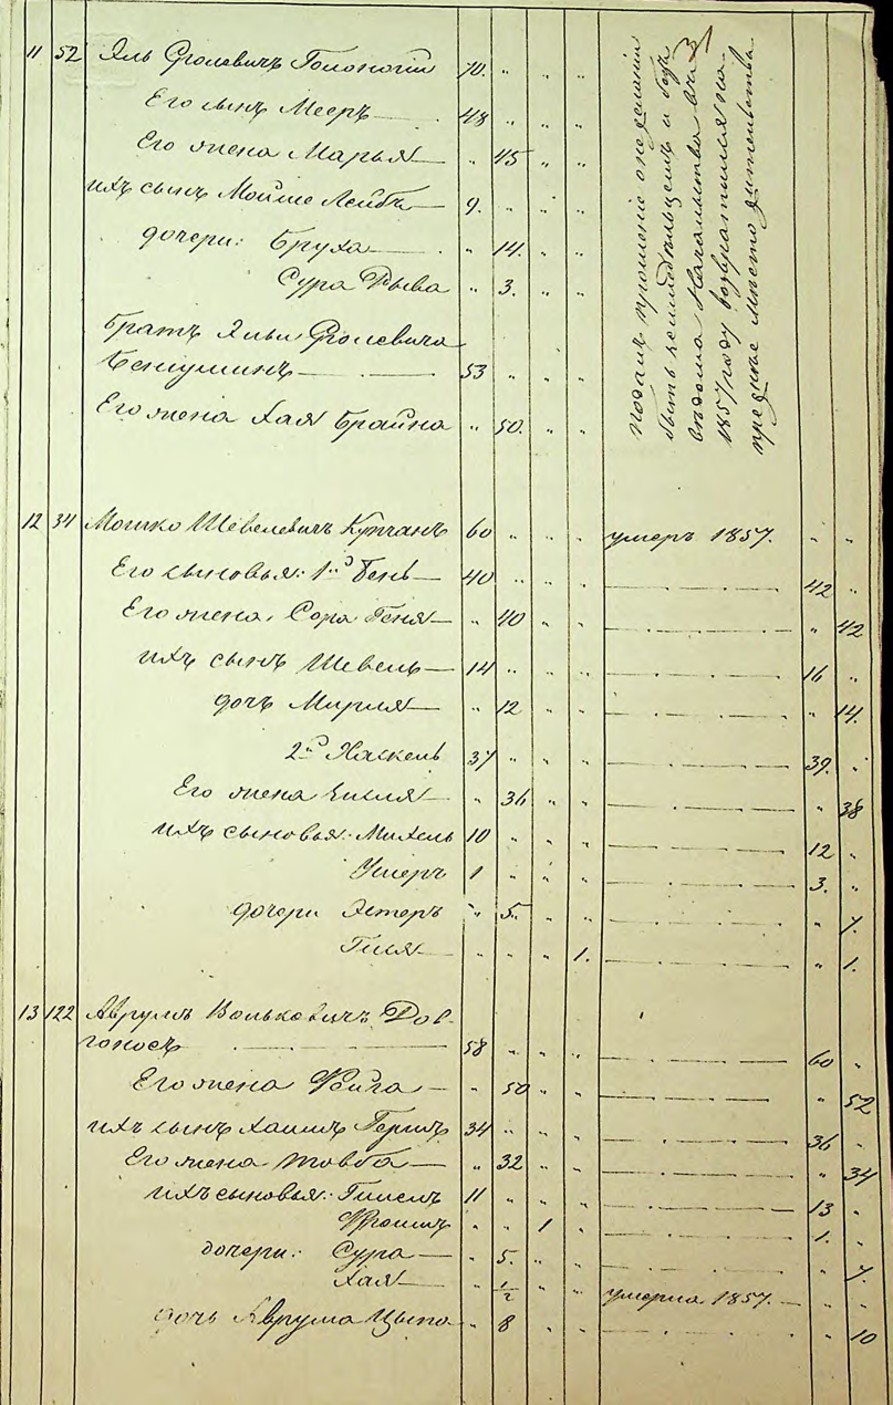 11 52 Эль Сролевичъ Голоногій 70. " " "
Его сынъ Мееръ 48 " " "
Его жена Марья " 45 " "
ихъ сынъ Мойше Лейбъ 9. " " "
дочери: Бруха " 14. " "
Сура Рыва " 3. " "
братъ Эльи Сролевича
Бениуминъ 53 " " "
Его жена Хая Брайна " 50. " "
подалъ прошеніе о нежеланіи
быть земледѣльцемъ и безъ
вѣдома Начальства въ
1857 году возвратился на
прежнее мѣсто жительства
12 34 Мошко Шевелевичъ Купчанъ 60 " " " умеръ 1857. " "
Его сыновья: 1й Бень 40 " " " 42 "
Его жена Сора Геня " 40 " " " 42
ихъ сынъ Шевель 14 " " " 16 "
дочь Мирля " 12 " " " 14.
2й Хаскель 37 " " " 39. "
Его жена " 36 " " " 38
ихъ сыновья: Михель 10 " " " 12 "
Ушеръ 1 " " " 3. "
дочери Эстеръ " 5. " " " 7.
Гися " " " 1. " 1.
13 122 Аврумъ Вольковичъ Дов-
гоносъ 58 " " " 60 "
Его жена Фейга " 50 " " " 52
ихъ сынъ Хаимъ Гершъ 34 " " " 36 "
Его жена Товба " 32 " " " 34
ихъ сыновья: Гимель 11 " " " 13 "
Фроимъ " " 1 " 1. "
дочери: Сура " 5. " " " 7.
Хая " 1/2 " " умерла 1857. " "
дочь Аврума Цыпа " 8 " " " 10